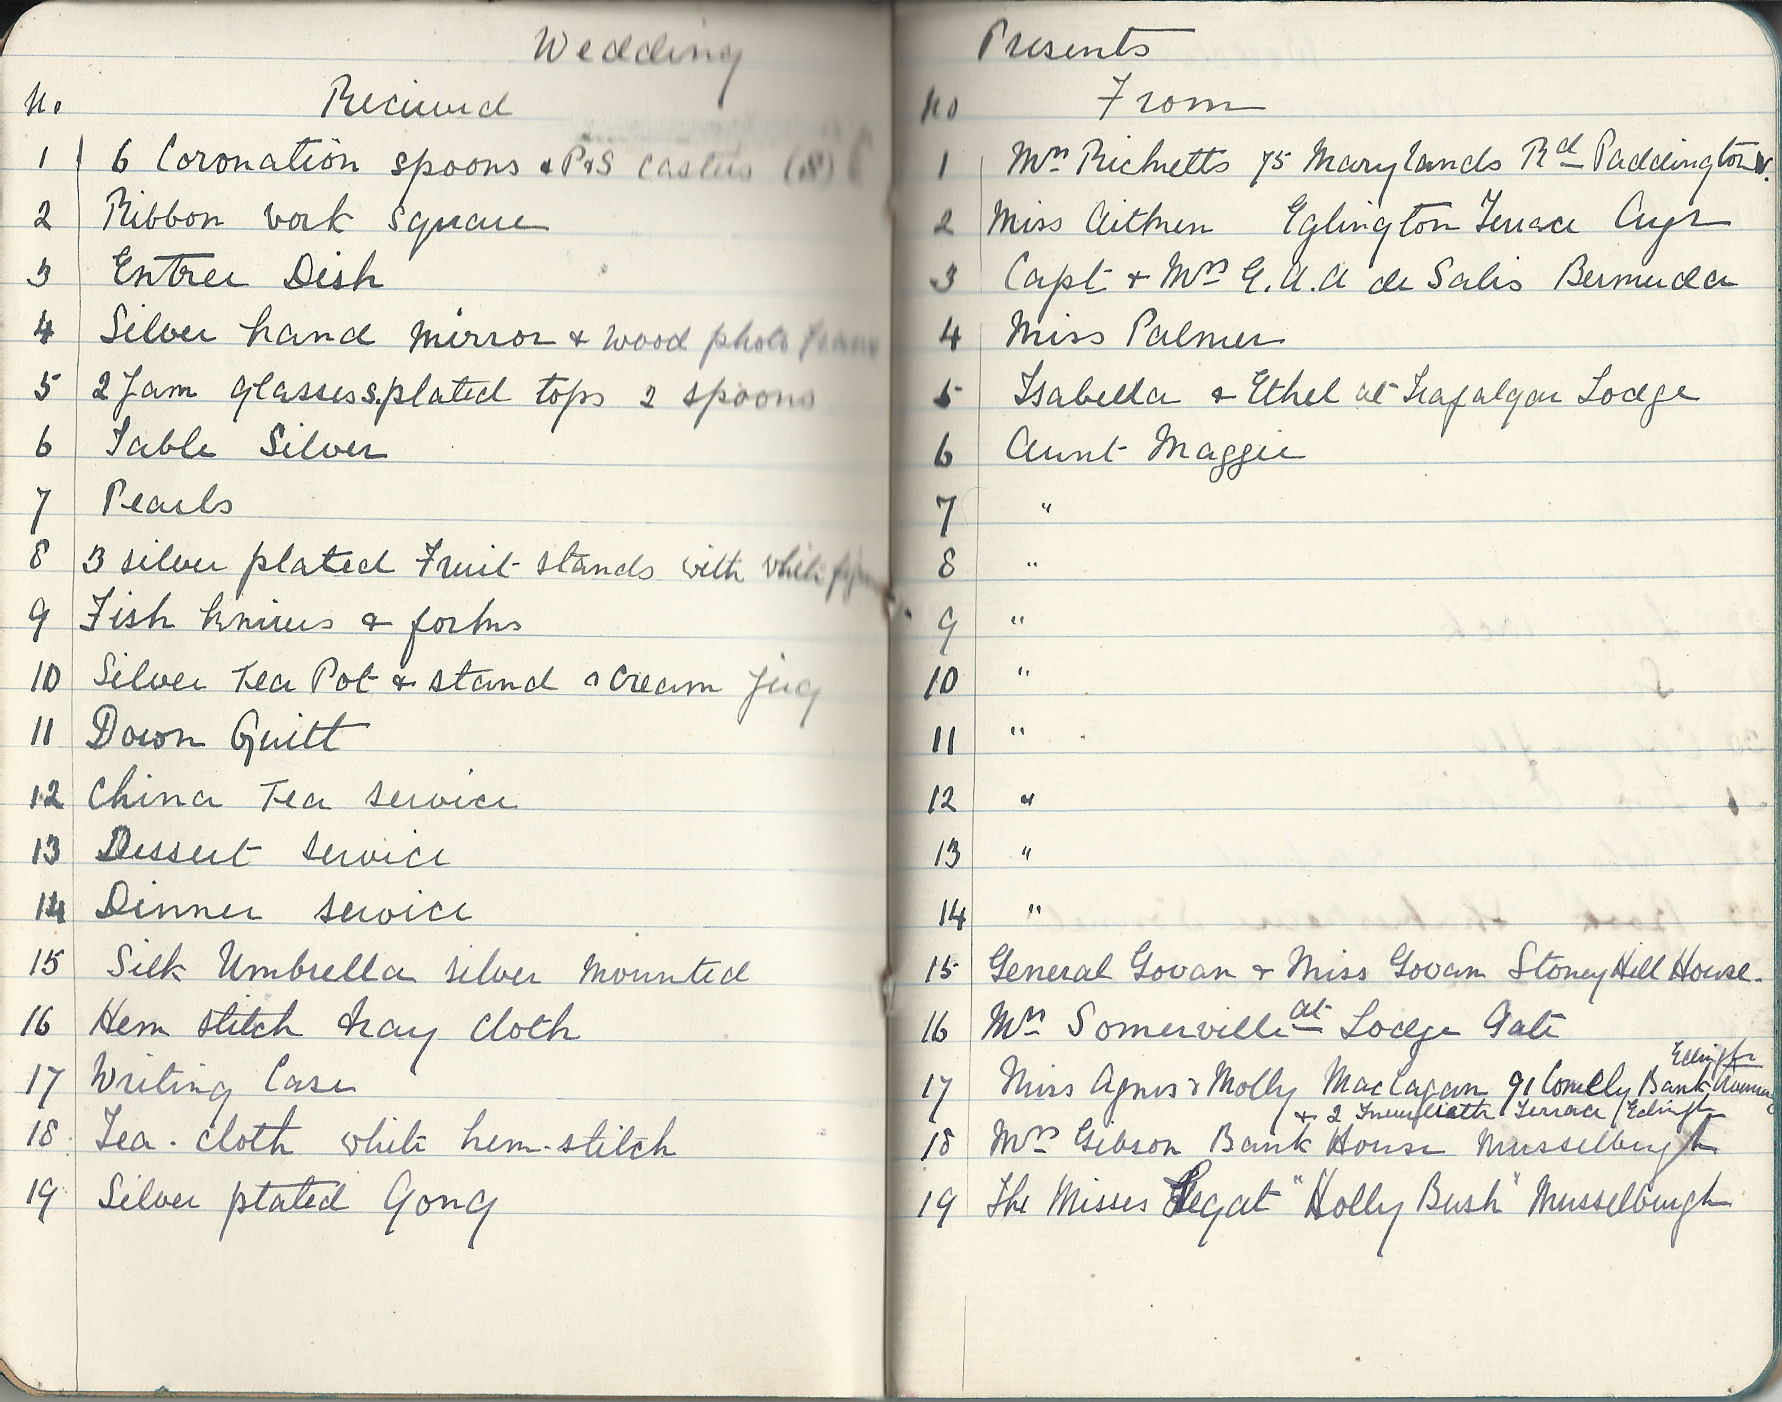 Wedding Presents
No Received No From
1 6 Coronation spoons & P&S Casters (S) 1 Mrs Ricketts 75 Marylands Rd Paddington W.
2 Ribbon work square 2 Miss Aitken Eglington Terrace Ayr
3 Entree Dish 3 Capt & Mrs E.A.A de Salis Bermuda
4 Silver hand mirror & wood photo frame 4 Miss Palmer
5 2 Jam glasses s.plated tops 2 spoons 5 Isabella & Ethel at Trafalgar Lodge
6 Table Silver 6 Aunt Maggie
7 Pearls 7 "
8 3 silver plated Fruit stands with white 8 "
9 Fish knives & forks 9 "
10 Silver Tea Pot & stand & Cream Jug 10 "
11 Down Quilt 11 "
12 China Tea service 12 "
13 Dessert service 13 "
14 Dinner service 14 "
15 Silk Umbrella silver mounted 15 General Govan & Miss Govan Stoney Hill House.
16 Hem stitch tray cloth 16 Mrs Somerville at Lodge Gate
17 Writing Case 17 Miss Agnes & Molly MacLagan 91 Comelly Bank Avenue
& 2 Terrace
18 Tea-cloth white hem-stitch 18 Mrs Gibson Bank House Musselburgh
19 Silver plated Gong 19 The Misses Legat "Holly Bush" Musselburgh